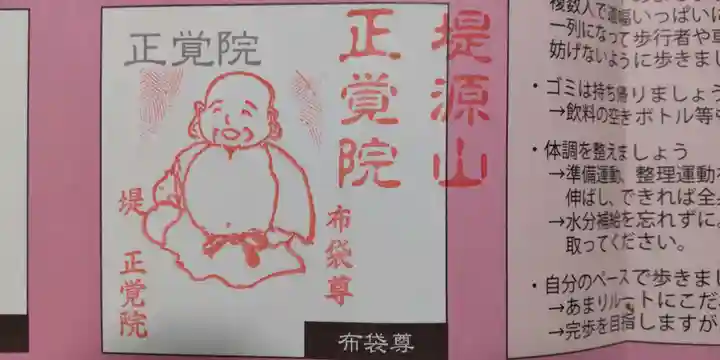 正覚院
堤源山
正覚院
堤 正覚院
布袋尊
布袋尊
複数人で道幅いっぱいに
一列になって歩行者や車
妨げないように歩きまし
・ゴミは持ち帰りましょう
→飲料の空きボトル等
・体調を整えましょう
→準備運動、整理運動を
伸ばし、できれば全身
→水分補給を忘れずに。
取ってください。
・自分のペースで歩きまし
→あまりルートにこだ
→完歩を目指しますが